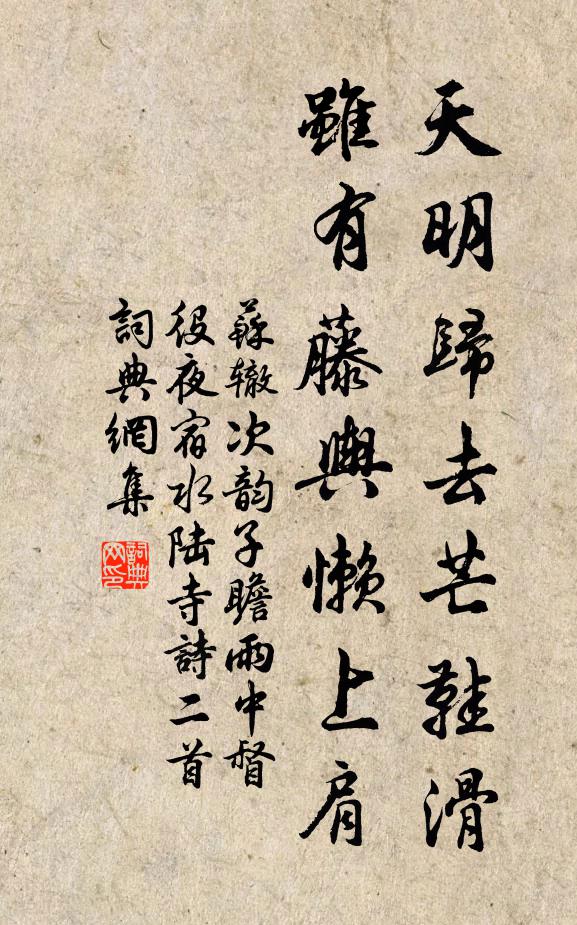 天明歸去芒鞋滑
雖有藤輿懶上肩
蘇轍次韵子瞻雨中督
役夜宿水陆寺詩二首
詞典網集
詞典
网印